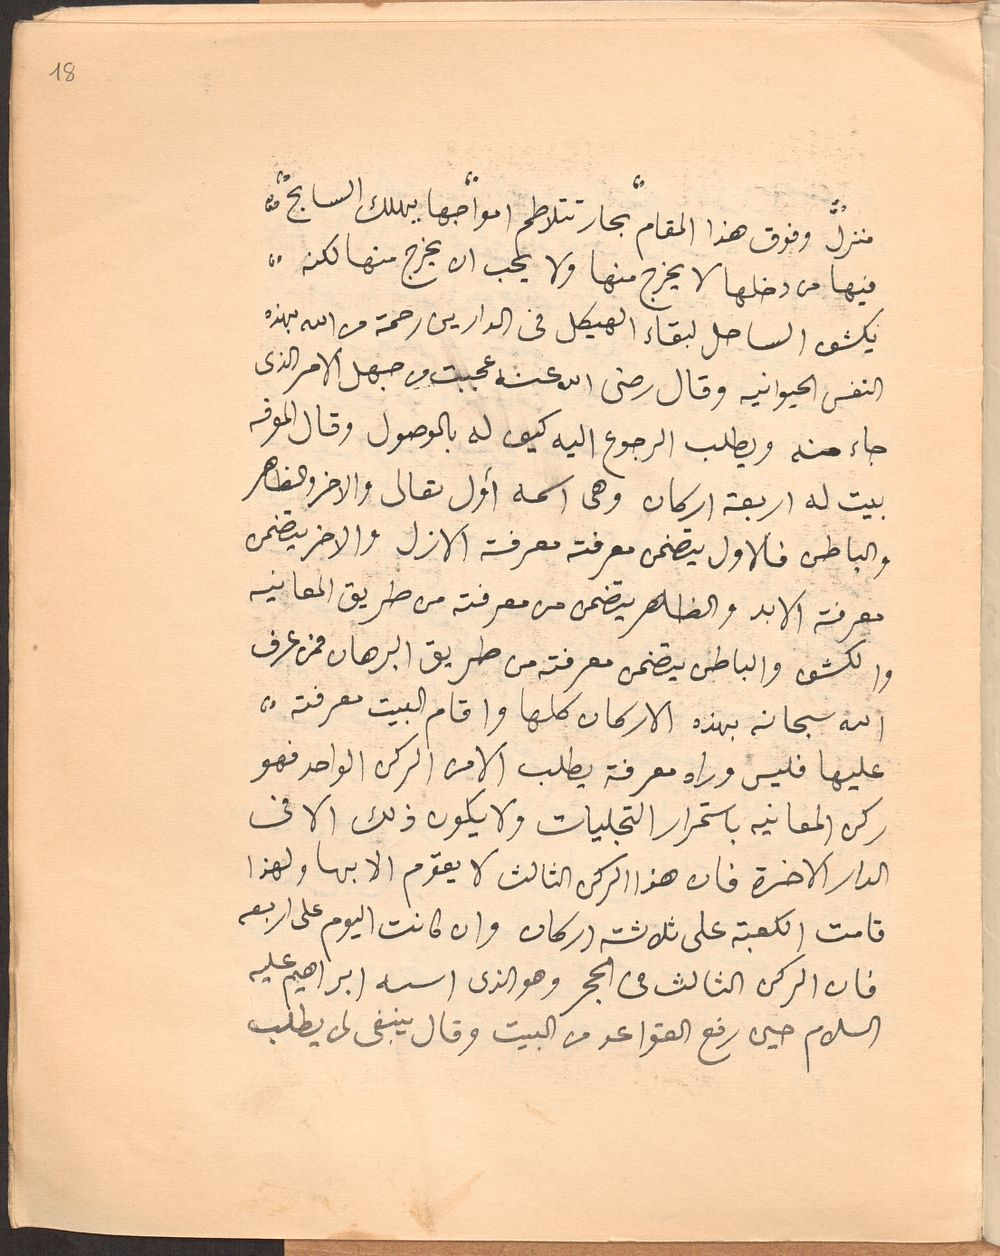 18
منزل وفوق هذا المقام بحار تتلاطم امواجها يهلك السابح
فيها من دخلها لا يخرج منها ولا يحب ان يخرج منها لكنه
يكشف الساحل لبقاء الهيكل فى الدارين رحمة من الله بهذه
النفس الحيوانيه وقال رضى الله عنه عجبت من جهل الامر الذى
جاء منه ويطلب الرجوع اليه كيف له بالوصول وقال المعرفه
بيت له اربعة اركان وهى اسمه أول تعالى والاخر والظاهر
والباطن فالاول يتضمن معرفته معرفة الازل والاخر يتضمن
معرفة الابد والظاهر يتضمن من معرفته من طريق المعاينه
والكشف والباطن يتضمن معرفته من طريق البرهان فمن عرف
الله سبحانه بهذه الاركان كلها واقام البيت معرفته
عليها فليس وراه معرفة يطلب الامن الركن الواحد فهو
ركن المعاينه باستمرار التجليات ولا يكون ذلك الا فى
الدار الاخرة فان هذا الركن الثالث لا يقوم الا بها ولهذا
قامت الكعبة على ثلاثة اركان وان كانت اليوم على اربعه
فان الركن الثالث فى الحجر وهو الذى اسسه ابراهيم عليه
السلام حين رفع القواعد من البيت وقال ينبغى لمن يطلب